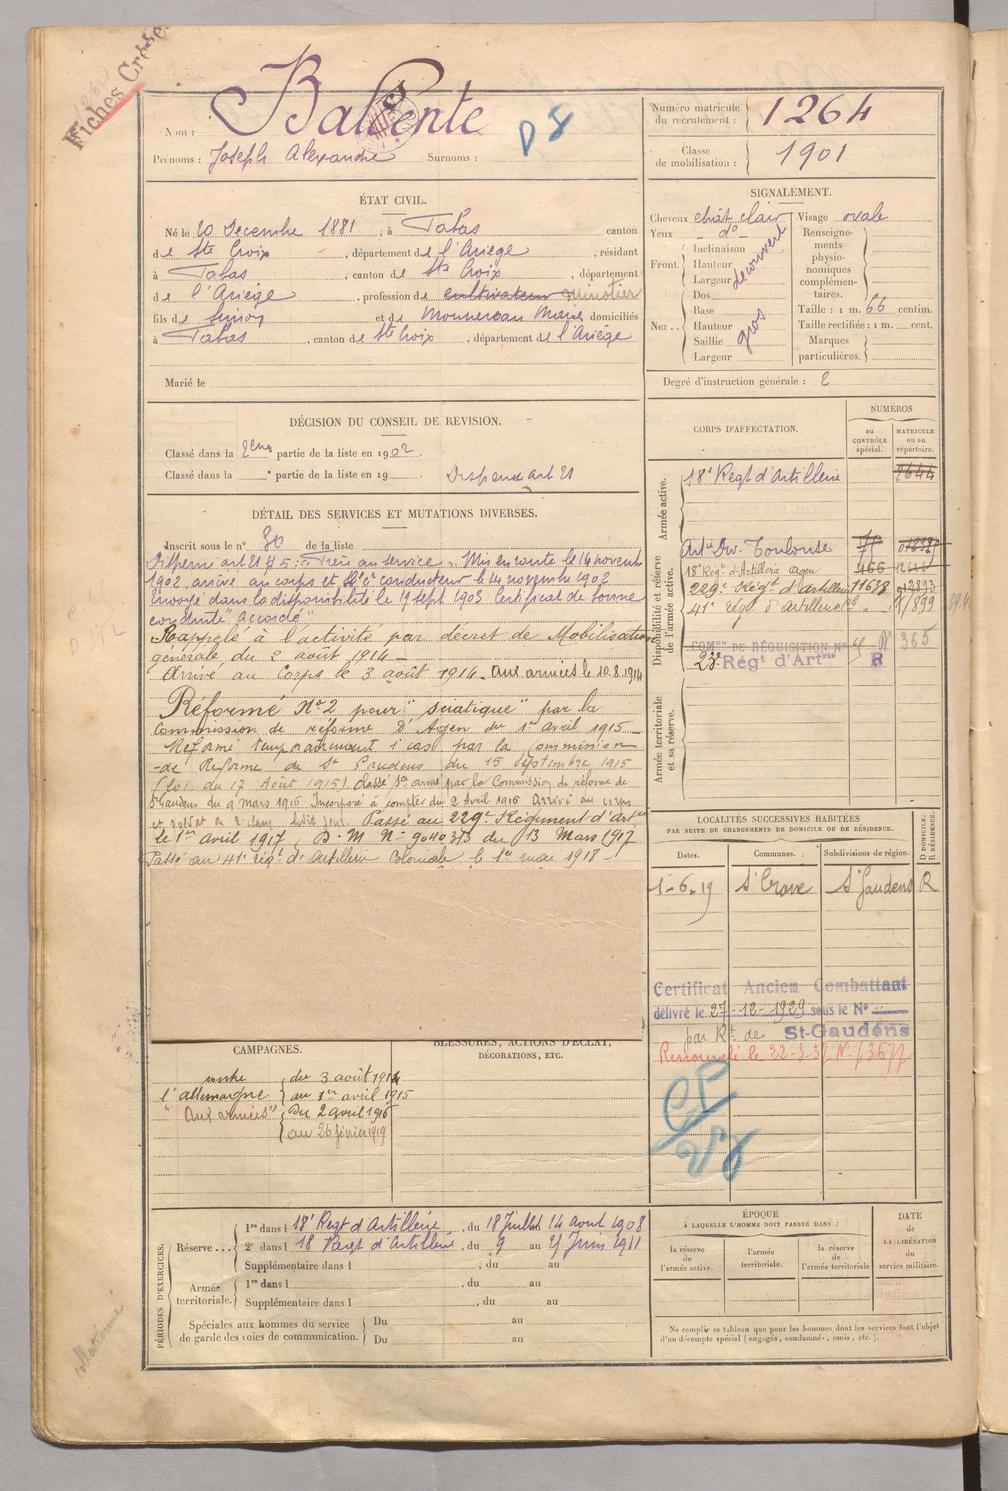 Fiches Cré
Nom : Balente
D 8
Prénoms : Joseph Alexandre Surnoms :
Numéro matricule du recrutement : 1264
Classe de mobilisation : 1901
ÉTAT CIVIL.
Né le 20 Decembre 1881, à Fabas canton
de Ste Croix, département de l'Ariège, résidant
à Fabas, canton de Ste Croix, département
de l'Ariège, profession de cultivateur minotier
fils de Simon et de Marie domiciliés
à Fabas, canton de Ste Croix, département de l'Ariège
Marié le
SIGNALEMENT.
Cheveux chât clair
Yeux - do -
Front Inclinaison
Hauteur
Largeur
découvert
Nez Dos
Base
Hauteur
Saillie
Largeur
gros
Visage ovale
Renseignements physionomiques complémentaires.
Taille : 1 m. 66 centim.
Taille rectifiée : 1 m. cent.
Marques particulières.
Degré d'instruction générale : 2
DÉCISION DU CONSEIL DE REVISION.
Classé dans la 2eme partie de la liste en 1902.
Classé dans la e partie de la liste en 19 Dispensé art 21
DÉTAIL DES SERVICES ET MUTATIONS DIVERSES.
Inscrit sous le n° 30 de la liste
Dispensé art 21 § 5 : "Frère au service". Mis en route le 14 novemb
1902, arrivé au corps et 2e cr conducteur le 14 novembre 1902
Envoyé dans la disponibilité le 19 sept 1903 Certificat de bonne
conduite "accordé"
Rappelé à l'activité par décret de Mobilisation
générale du 2 août 1914 —
Arrivé au Corps le 3 août 1914 - aux armées le 10.8.1914
Réformé No 2 pour "sciatique" par la
commission de réforme d'Agen du 1er avril 1915 —
Réformé temporairement 1 cas par la commission
de Réforme de St Gaudens du 15 Septembre 1915
(loi du 17 Août 1915) classé Sce armé par la Commission de réforme de
St Gaudens du 9 mars 1916 Incorporé à compter du 2 Avril 1916 Arrivé au corps
et soldat de 2e classe ledit jour. Passé au 229e Régiment d'Artie
le 1er avril 1917, D.M. N° 9040 3/3 du 13 Mars 1917
Passé au 41e rég. d'Artillerie Coloniale le 1er mai 1918 -
CORPS D'AFFECTATION.
NUMÉROS
au CONTRÔLE spécial.
MATRICULE ou au répertoire.
Armée active.
18e Régt d'Artillerie 1644
Disponibilité et réserve de l'armée active.
Artie Div. Toulouse
18e Régt d'Artillerie Agen 466
229e Régt d'Artillerie 11638
41e régt d'artillerie Cle " 11/899
COMon DE RÉQUISITION N° 365
23e Régt d'Artrie R
Armée territoriale et sa réserve.
LOCALITÉS SUCCESSIVES HABITÉES
PAR SUITE DE CHANGEMENTS DE DOMICILE OU DE RÉSIDENCE.
Dates. Communes. Subdivisions de région. D DOMICILE, R RÉSIDENCE.
1-6-19 St Croix St Gaudens R
Certificat Ancien Combattant
délivré le 27-12-1929 sous le N°
par Rt de St-Gaudens
Renouvelé le 22-3-37 N° 43677
CAMPAGNES.
BLESSURES, ACTIONS D'ÉCLAT, DÉCORATIONS, ETC.
contre du 3 août 1914
l'allemagne au 1er avril 1915
"Aux armées" Du 2 avril 1916
au 26 février 1919
PÉRIODES D'EXERCICES.
Réserve
1re dans l 18e Régt d'Artillerie, du 18 Juillet 14 août 1908
2e dans l 18 Régt d'Artillerie, du 9 au 25 Juin 1911
Supplémentaire dans l , du au
Armée territoriale.
1re dans l , du au
Supplémentaire dans l , du au
Spéciales aux hommes du service de garde des voies de communication.
Du au
Du au
ÉPOQUE
À LAQUELLE L'HOMME DOIT PASSER DANS :
la réserve de l'armée active.
l'armée territoriale.
la réserve de l'armée territoriale
DATE de LA LIBÉRATION du service militaire.
Ne remplir ce tableau que pour les hommes dont les services font l'objet
d'un décompte spécial (engagés, condamnés, omis, etc.).